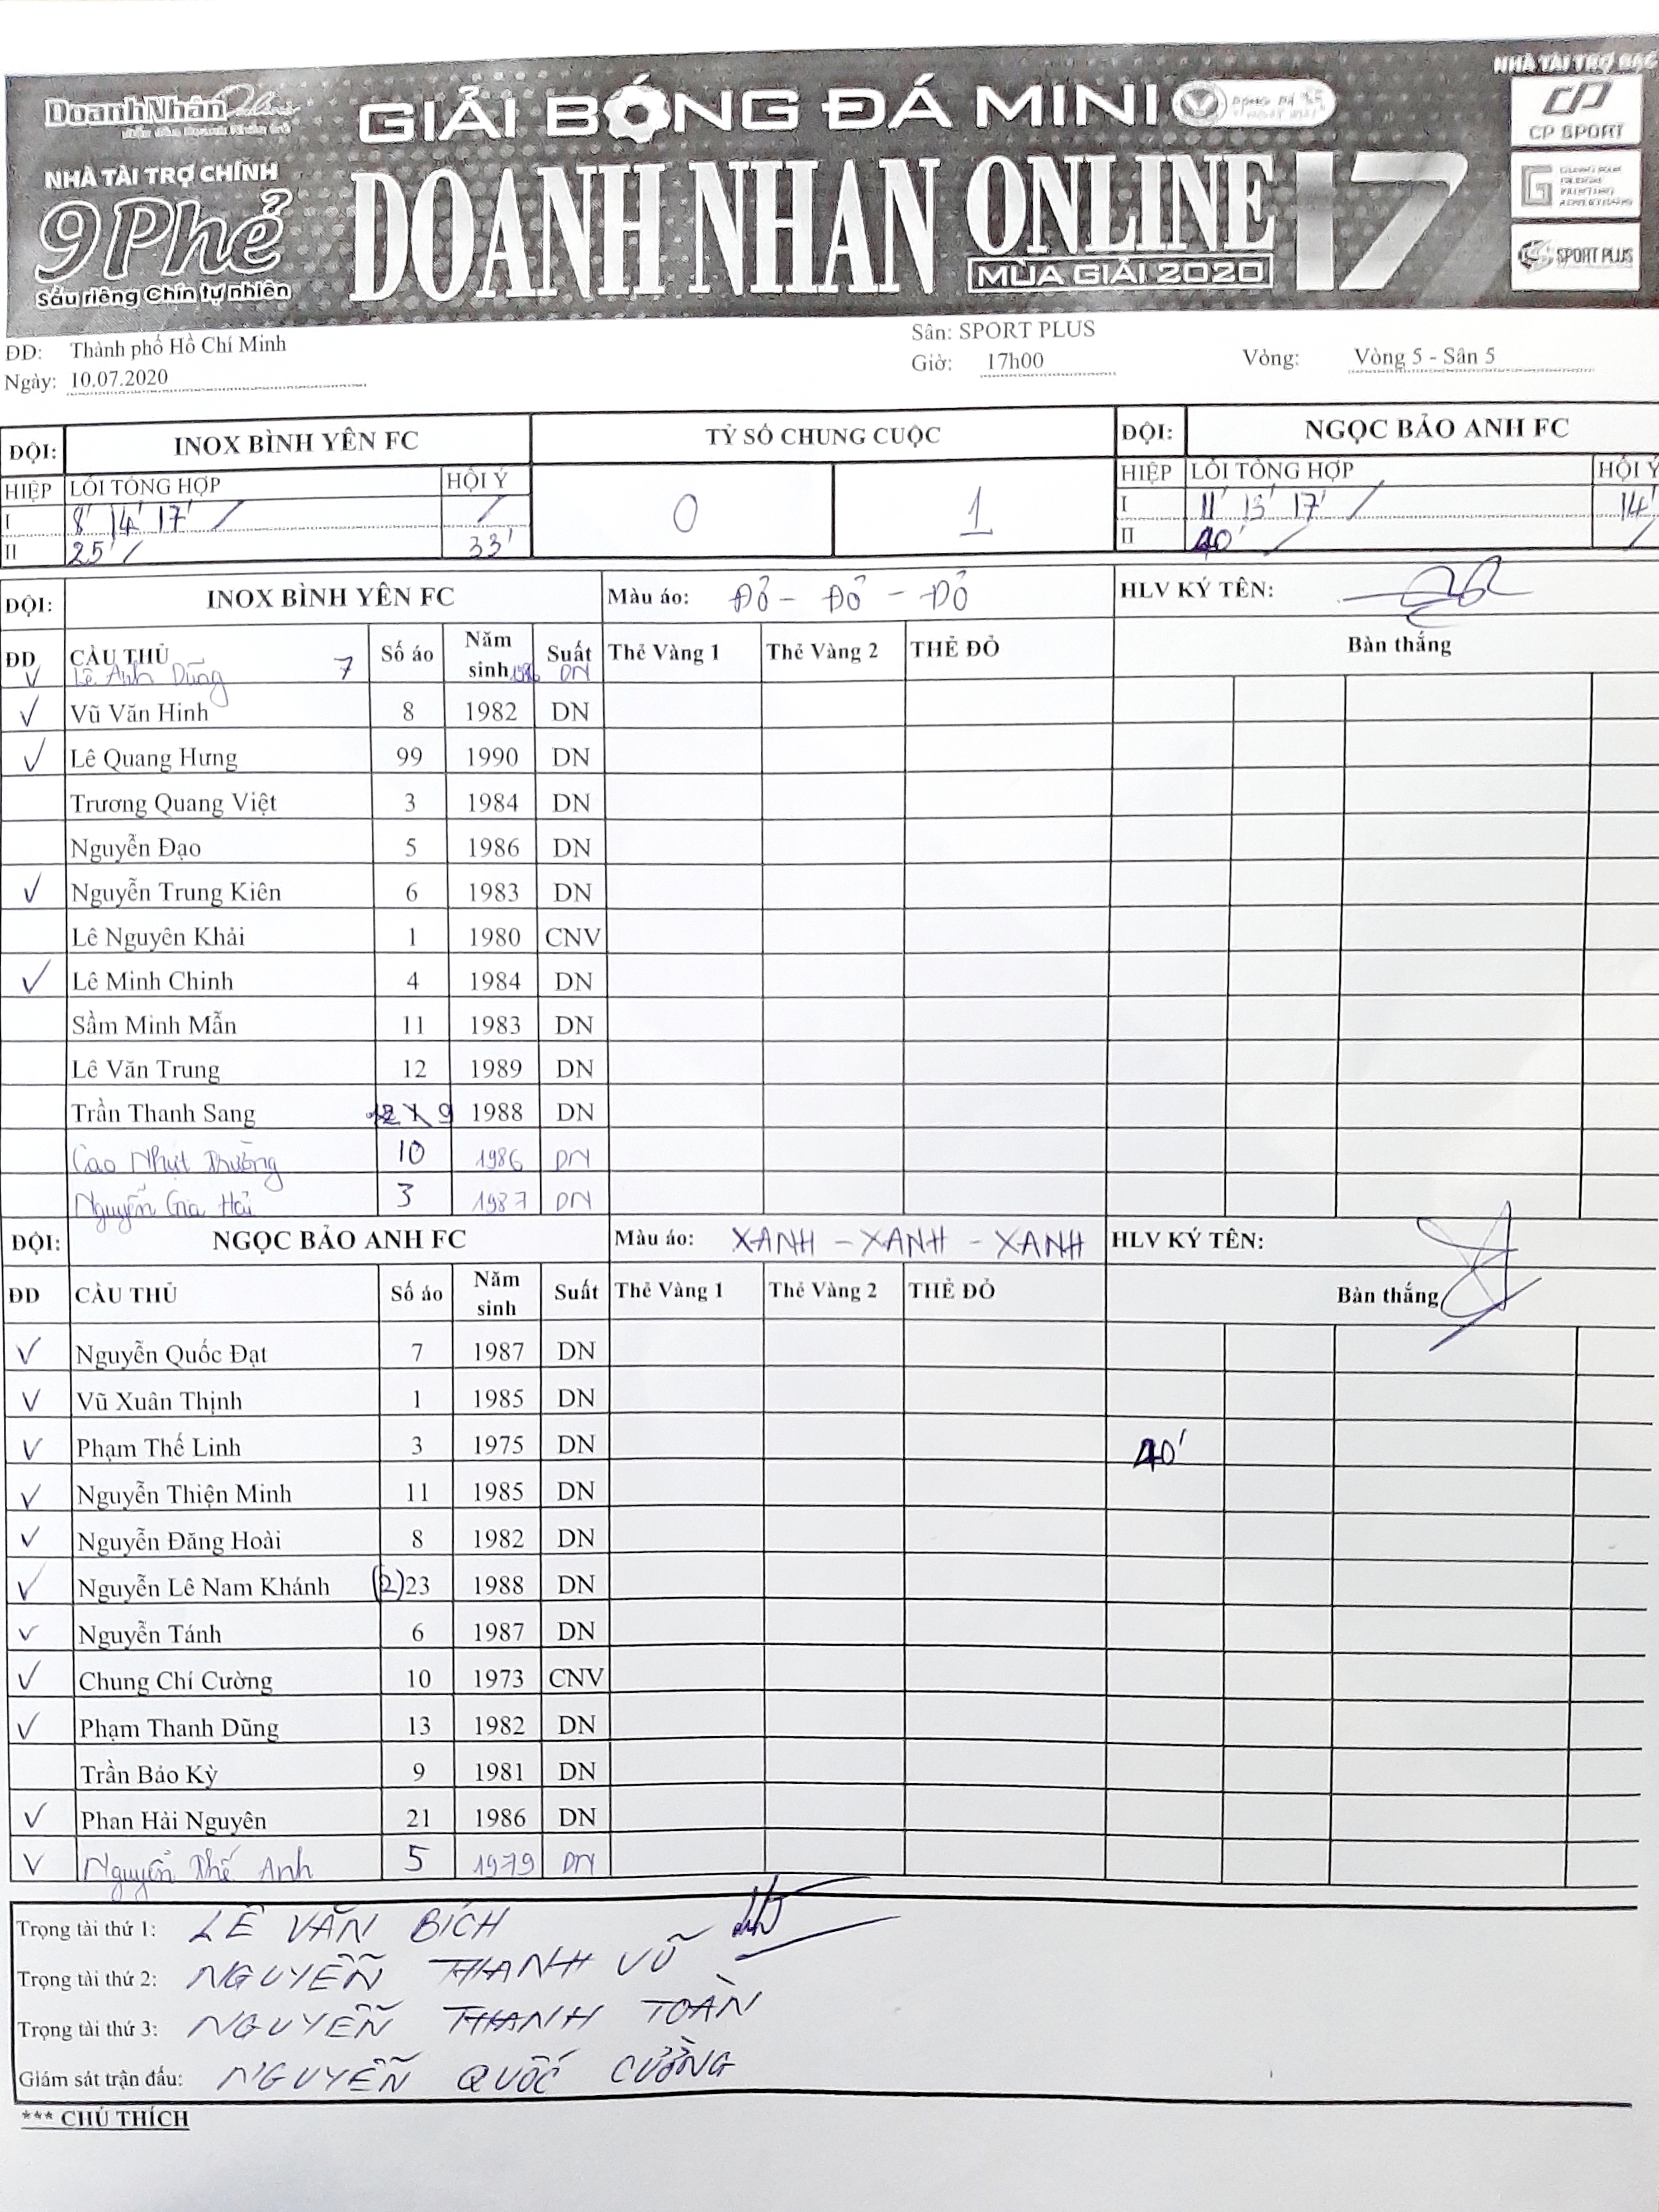 NHÀ TÀI TRỢ BẠC
DoanhNhân Online
GIẢI BÓNG ĐÁ MINI
CP SPORT
NHÀ TÀI TRỢ CHÍNH
9 Phẻ
Sầu riêng Chín tự nhiên
DOANH NHÂN ONLINE 17
MÙA GIẢI 2020
SPORT PLUS
ĐD: Thành phố Hồ Chí Minh Sân: SPORT PLUS
Ngày: 10.07.2020 Giờ: 17h00 Vòng: Vòng 5 - Sân 5
ĐỘI: INOX BÌNH YÊN FC TỶ SỐ CHUNG CUỘC ĐỘI: NGỌC BẢO ANH FC
HIỆP LỖI TỔNG HỢP HỘI Ý 0 1 HIỆP LỖI TỔNG HỢP HỘI Ý
I 8' 14' 17' / / I 11' 13' 17' / 14'
II 25' / 33' II 40' / /
ĐỘI: INOX BÌNH YÊN FC Màu áo: ĐỎ - ĐỎ - ĐỎ HLV KÝ TÊN:
ĐD CẦU THỦ Số áo Năm sinh Suất Thẻ Vàng 1 Thẻ Vàng 2 THẺ ĐỎ Bàn thắng
✓ Lê Anh Dũng 7 DN
✓ Vũ Văn Hinh 8 1982 DN
✓ Lê Quang Hưng 99 1990 DN
Trương Quang Việt 3 1984 DN
Nguyễn Đạo 5 1986 DN
✓ Nguyễn Trung Kiên 6 1983 DN
Lê Nguyên Khải 1 1980 CNV
✓ Lê Minh Chinh 4 1984 DN
Sầm Minh Mẫn 11 1983 DN
Lê Văn Trung 12 1989 DN
Trần Thanh Sang 9 1988 DN
Cao Nhựt Trường 10 1986 DN
Nguyễn Gia Hải 3 1987 DN
ĐỘI: NGỌC BẢO ANH FC Màu áo: XANH - XANH - XANH HLV KÝ TÊN:
ĐD CẦU THỦ Số áo Năm sinh Suất Thẻ Vàng 1 Thẻ Vàng 2 THẺ ĐỎ Bàn thắng
✓ Nguyễn Quốc Đạt 7 1987 DN
✓ Vũ Xuân Thịnh 1 1985 DN
✓ Phạm Thế Linh 3 1975 DN 40'
✓ Nguyễn Thiện Minh 11 1985 DN
✓ Nguyễn Đăng Hoài 8 1982 DN
✓ Nguyễn Lê Nam Khánh (2) 23 1988 DN
✓ Nguyễn Tánh 6 1987 DN
✓ Chung Chí Cường 10 1973 CNV
✓ Phạm Thanh Dũng 13 1982 DN
Trần Bảo Kỳ 9 1981 DN
✓ Phan Hải Nguyên 21 1986 DN
✓ Nguyễn Thế Anh 5 1979 DN
Trọng tài thứ 1: LÊ VĂN BÍCH
Trọng tài thứ 2: NGUYỄN THANH VŨ
Trọng tài thứ 3: NGUYỄN THANH TOÀN
Giám sát trận đấu: NGUYỄN QUỐC CƯỜNG
*** CHÚ THÍCH